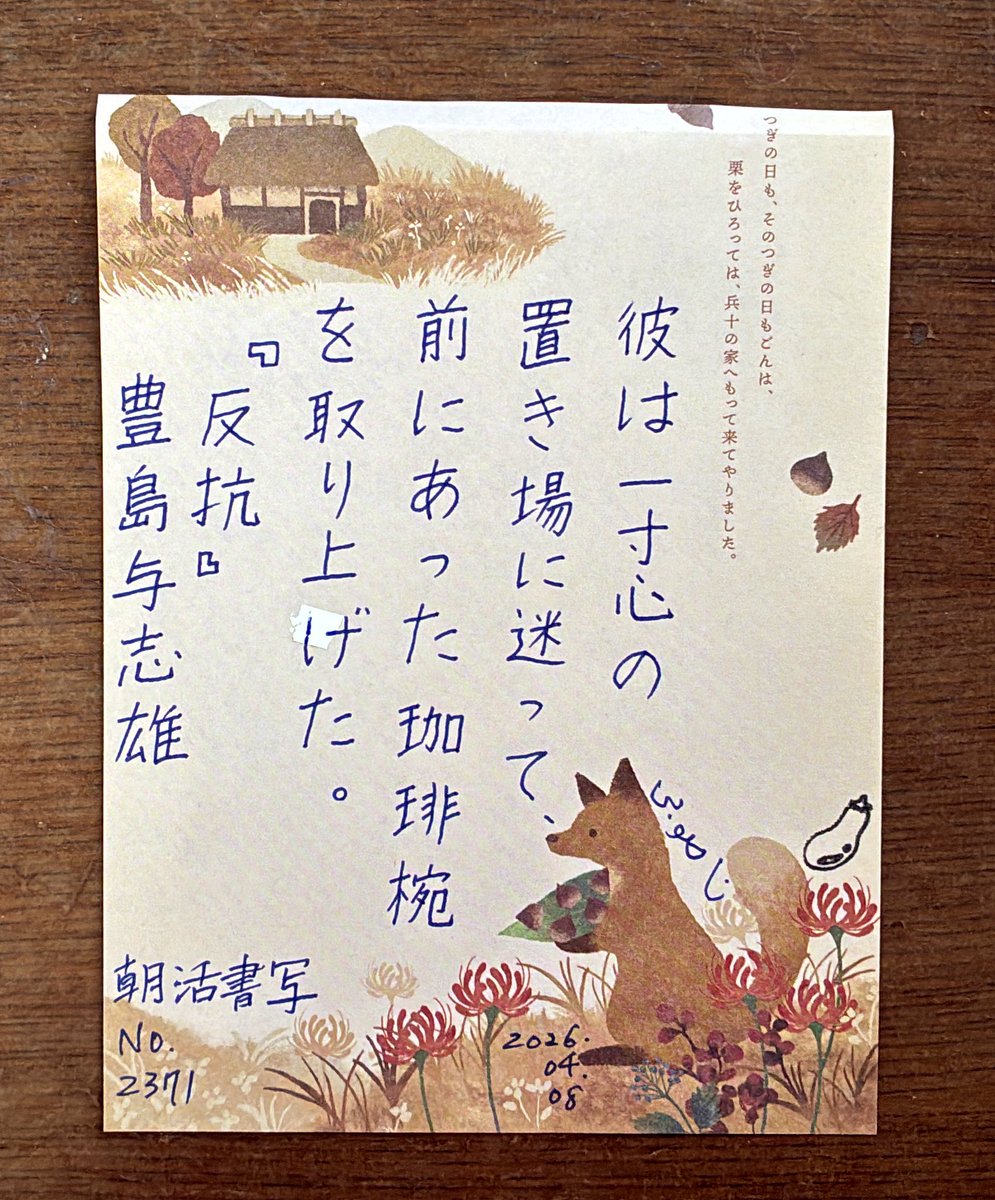 つぎの日も、そのつぎの日もごんは、
栗をひろっては、兵十の家へもって来てやりました。
彼は一寸心の
置き場に迷って、
前にあった珈琲椀
を取り上げた。
『反抗』
豊島与志雄
朝活書写
No.
2371
2026.
04.
08